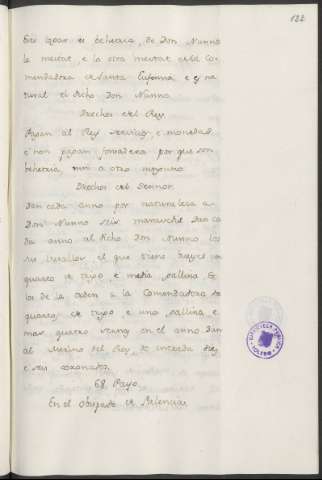 122
Este logar es behetria, de Don Nunno
la meitat, e la otra meitat es del Co-
mendadora de Santa Eufemia e es na
tural el dicho Don Nunno.
Derechos del Rey.
Pagan al Rey servicios, e monedas
e non pagan fonsadera por que son
behetria, nin a otro ninguno
Derechos del Sennor.
Dan cada anno por naturaleza a
Don Nunno seis maravedis Dan ca
da anno al dicho Don Nunno los
sus vasallos, el que tiene bueyes
quarto de trigo, e media gallina, e
los de la orden a la Comendadora
quarto de trigo e una gallina, e
mas quatro en el anno Dan
al Merino del Rey de entrada
e seis coronados.
68. Payo.
En el Obispado de Palencia
BIBLIOTECA PUBLICA
TOLEDO